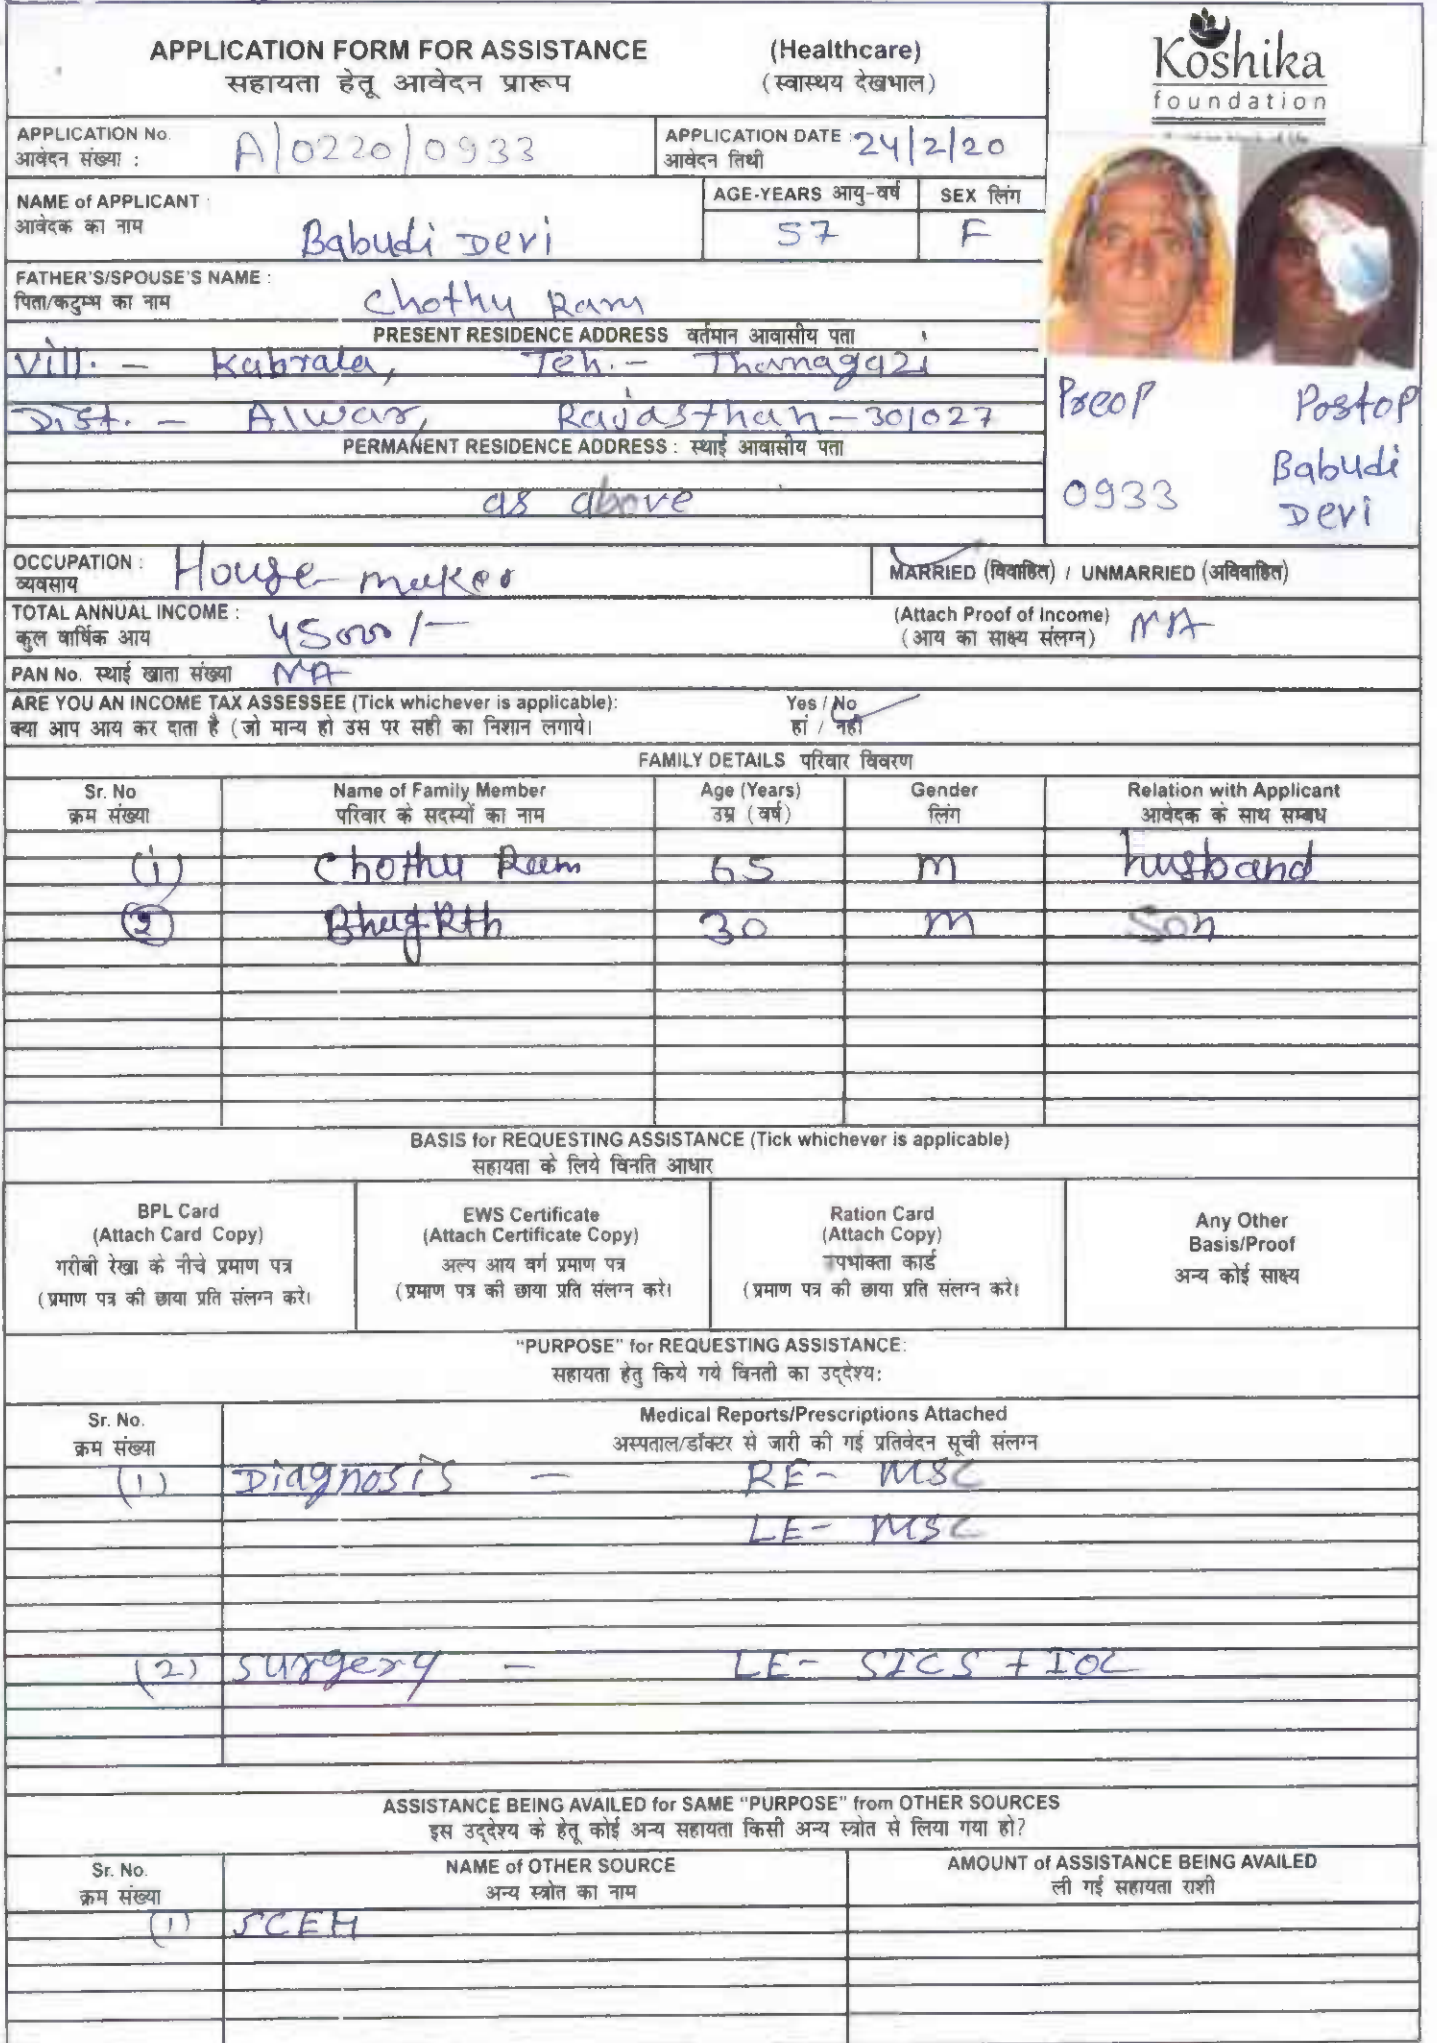 APPLICATION FORM FOR ASSISTANCE (Healthcare)
सहायता हेतू आवेदन प्रारूप (स्वास्थय देखभाल)
Koshika
foundation
APPLICATION No. A/0220/0933 APPLICATION DATE : 24/2/20
आवेदन संख्या : आवेदन तिथी
NAME of APPLICANT : AGE-YEARS आयु-वर्ष SEX लिंग
आवेदक का नाम Babudi Devi 57 F
FATHER'S/SPOUSE'S NAME :
पिता/कटुम्भ का नाम Chothu Ram
PRESENT RESIDENCE ADDRESS वर्तमान आवासीय पता
Vill. - Kabrala, Teh.- Thanagazi
Dist. - Alwar, Rajasthan-301027
PERMANENT RESIDENCE ADDRESS : स्थाई आवासीय पता
as above
Preop Postop
0933 Babudi
Devi
OCCUPATION : House maker MARRIED (विवाहित) / UNMARRIED (अविवाहित)
व्यवसाय
TOTAL ANNUAL INCOME : 45000/- (Attach Proof of Income) NA
कुल वार्षिक आय (आय का साक्ष्य संलग्न)
PAN No. स्थाई खाता संख्या NA
ARE YOU AN INCOME TAX ASSESSEE (Tick whichever is applicable): Yes / No
क्या आप आय कर दाता है (जो मान्य हो उस पर सही का निशान लगाये। हां / नही
FAMILY DETAILS परिवार विवरण
Sr. No Name of Family Member Age (Years) Gender Relation with Applicant
क्रम संख्या परिवार के सदस्यों का नाम उम्र (वर्ष) लिंग आवेदक के साथ सम्बध
(1) Chothu Ram 65 M husband
(2) BhugRth 30 M Son
BASIS for REQUESTING ASSISTANCE (Tick whichever is applicable)
सहायता के लिये विनति आधार
BPL Card
(Attach Card Copy)
गरीबी रेखा के नीचे प्रमाण पत्र
(प्रमाण पत्र की छाया प्रति संलग्न करे।
EWS Certificate
(Attach Certificate Copy)
अल्प आय वर्ग प्रमाण पत्र
(प्रमाण पत्र की छाया प्रति संलग्न करे।
Ration Card
(Attach Copy)
उपभोक्ता कार्ड
(प्रमाण पत्र की छाया प्रति संलग्न करे।
Any Other
Basis/Proof
अन्य कोई साक्ष्य
"PURPOSE" for REQUESTING ASSISTANCE:
सहायता हेतु किये गये विनती का उद्देश्य:
Sr. No. Medical Reports/Prescriptions Attached
क्रम संख्या अस्पताल/डॉक्टर से जारी की गई प्रतिवेदन सूची संलग्न
(1) Diagnosis - RE- MSC
LE- MSC
(2) Surgery - LE- SICS + IOL
ASSISTANCE BEING AVAILED for SAME "PURPOSE" from OTHER SOURCES
इस उद्देश्य के हेतू कोई अन्य सहायता किसी अन्य स्त्रोत से लिया गया हो?
Sr. No. NAME of OTHER SOURCE AMOUNT of ASSISTANCE BEING AVAILED
क्रम संख्या अन्य स्त्रोत का नाम ली गई सहायता राशी
(1) SCEH